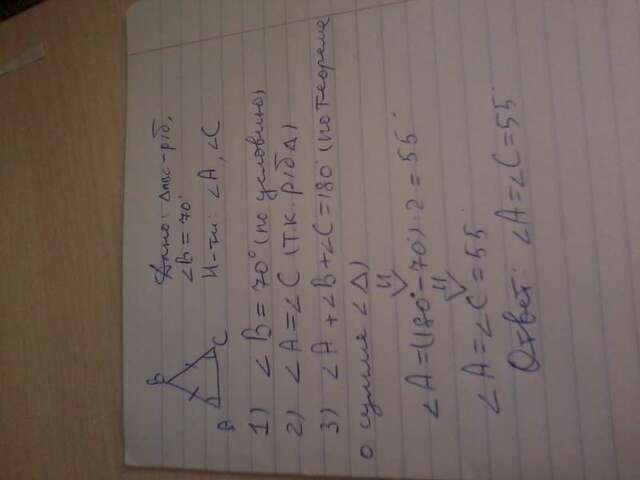 B
A
C
Дано: ΔАВС – р/б,
∠B = 70°
Н-ти: ∠A, ∠C
1) ∠B = 70° (по условию)
2) ∠A = ∠C (т.к. р/б Δ)
3) ∠A + ∠B + ∠C = 180° (по теореме
о сумме ∠ Δ)
⇓
∠A = (180° – 70°) : 2 = 55°
⇓
∠A = ∠C = 55°
Ответ: ∠A = ∠C = 55°